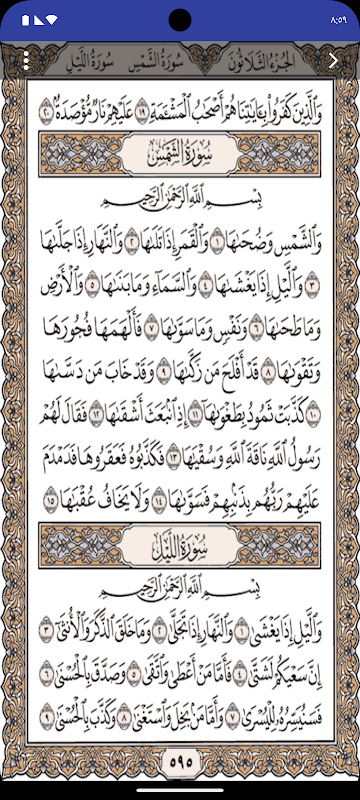 ٨:٥٩
الجزء الثلاثون سورة الشمس سورة الليل
وَالَّذِينَ كَفَرُوا بِـَٔايَٰتِنَا هُمْ أَصْحَٰبُ الْمَشْـَٔمَةِ ١٩ عَلَيْهِمْ نَارٌ مُّؤْصَدَةٌ ٢٠
سُورَةُ الشَّمْسِ
بِسْمِ اللَّهِ الرَّحْمَٰنِ الرَّحِيمِ
وَالشَّمْسِ وَضُحَىٰهَا ١ وَالْقَمَرِ إِذَا تَلَىٰهَا ٢ وَالنَّهَارِ إِذَا جَلَّىٰهَا
٣ وَالَّيْلِ إِذَا يَغْشَىٰهَا ٤ وَالسَّمَآءِ وَمَا بَنَىٰهَا ٥ وَالْأَرْضِ
وَمَا طَحَىٰهَا ٦ وَنَفْسٍ وَمَا سَوَّىٰهَا ٧ فَأَلْهَمَهَا فُجُورَهَا
وَتَقْوَىٰهَا ٨ قَدْ أَفْلَحَ مَن زَكَّىٰهَا ٩ وَقَدْ خَابَ مَن دَسَّىٰهَا
١٠ كَذَّبَتْ ثَمُودُ بِطَغْوَىٰهَا ١١ إِذِ انۢبَعَثَ أَشْقَىٰهَا ١٢ فَقَالَ لَهُمْ
رَسُولُ اللَّهِ نَاقَةَ اللَّهِ وَسُقْيَٰهَا ١٣ فَكَذَّبُوهُ فَعَقَرُوهَا فَدَمْدَمَ
عَلَيْهِمْ رَبُّهُم بِذَنۢبِهِمْ فَسَوَّىٰهَا ١٤ وَلَا يَخَافُ عُقْبَٰهَا ١٥
سُورَةُ اللَّيْلِ
بِسْمِ اللَّهِ الرَّحْمَٰنِ الرَّحِيمِ
وَالَّيْلِ إِذَا يَغْشَىٰ ١ وَالنَّهَارِ إِذَا تَجَلَّىٰ ٢ وَمَا خَلَقَ الذَّكَرَ وَالْأُنثَىٰ ٣
إِنَّ سَعْيَكُمْ لَشَتَّىٰ ٤ فَأَمَّا مَنْ أَعْطَىٰ وَاتَّقَىٰ ٥ وَصَدَّقَ بِالْحُسْنَىٰ ٦
فَسَنُيَسِّرُهُ لِلْيُسْرَىٰ ٧ وَأَمَّا مَنۢ بَخِلَ وَاسْتَغْنَىٰ ٨ وَكَذَّبَ بِالْحُسْنَىٰ ٩
٥٩٥